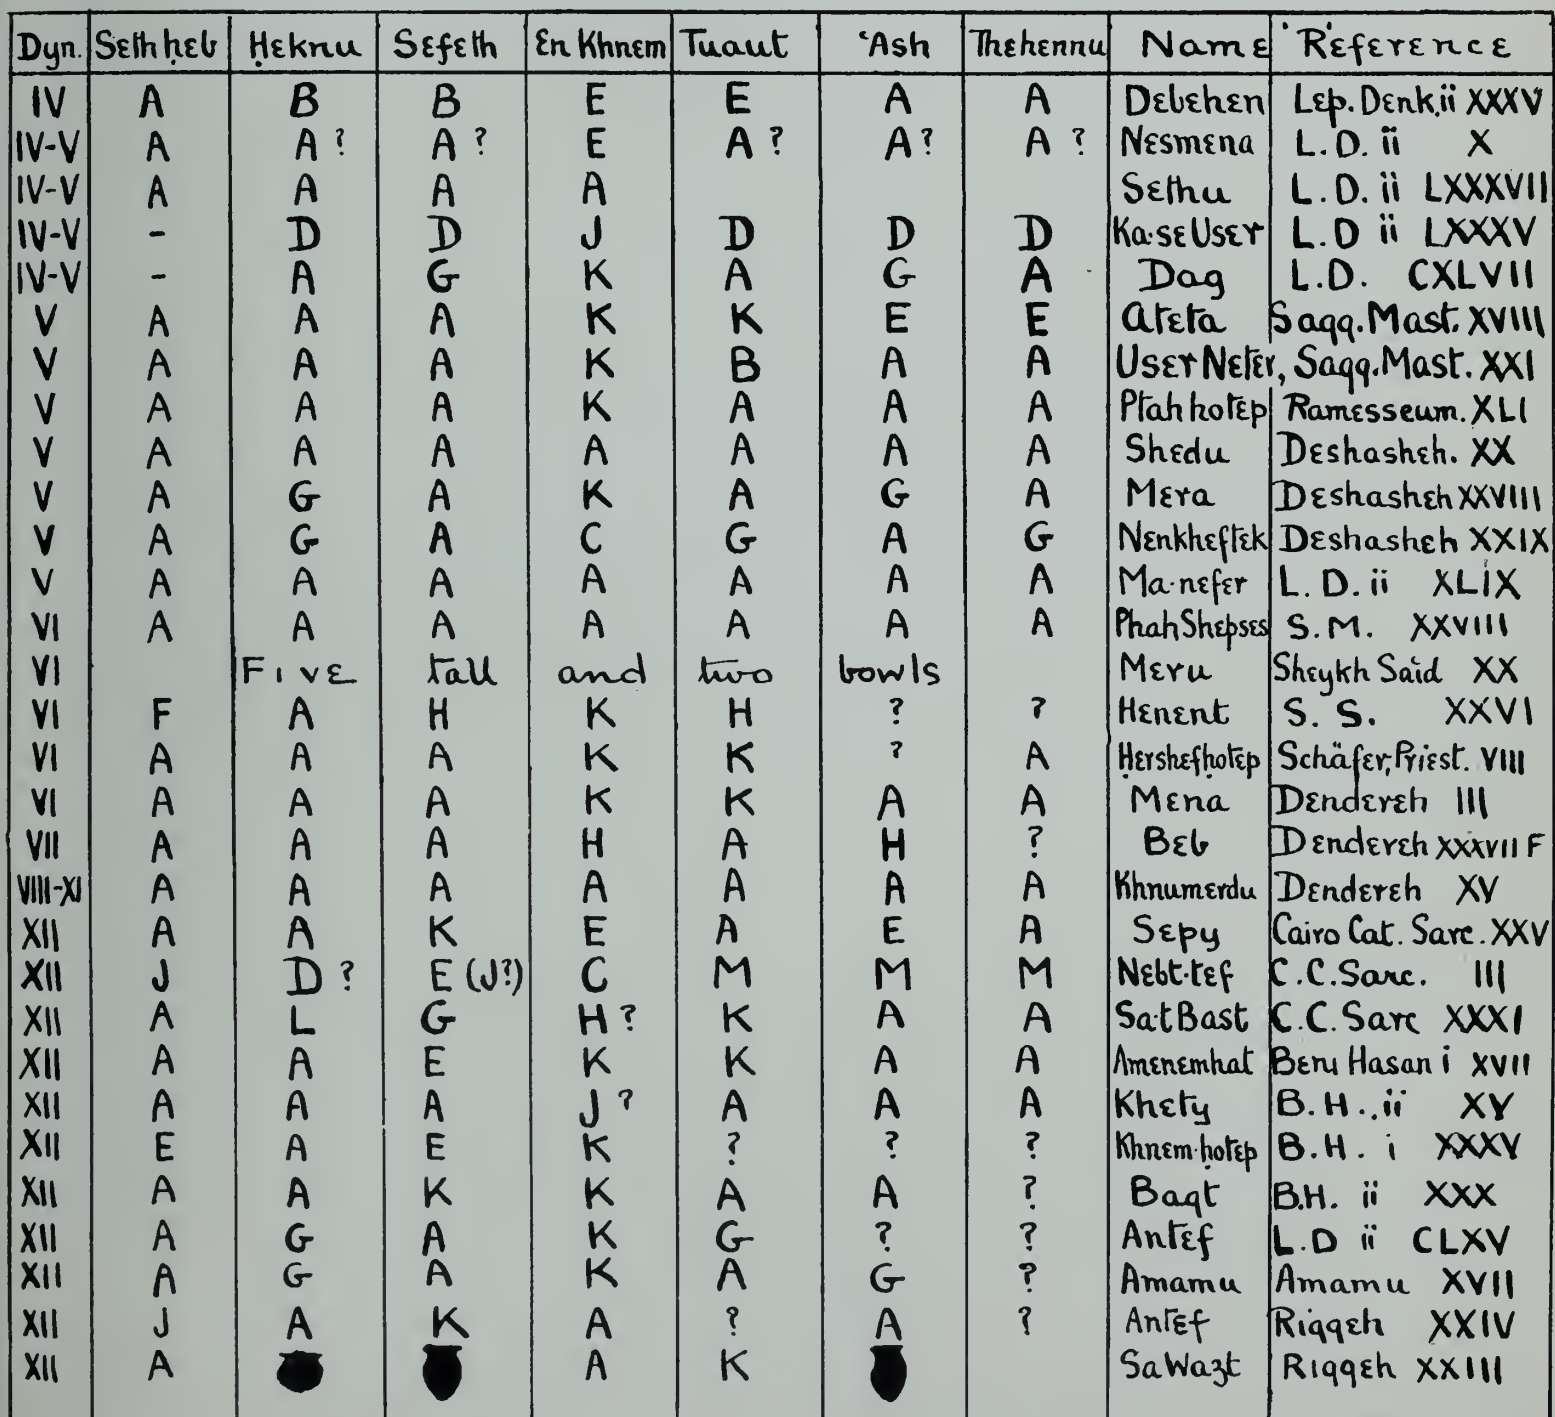 Dyn. Seth ḥeb Ḥeknu Sefeth En Khnem Tuaut ʿAsh Thehennu Name Reference
IV A B B E E A A Debehen Lep. Denk. ii XXXV
IV-V A A ? A ? E A ? A ? A ? Nesmena L. D. ii X
IV-V A A A A Sethu L. D. ii LXXXVII
IV-V - D D J D D D Ka·se User L. D ii LXXXV
IV-V - A G K A G A Dag L. D. CXLVII
V A A A K K E E Ateta Saqq. Mast. XVIII
V A A A K B A A User Neter, Saqq. Mast. XXI
V A A A K A A A Ptah hotep Ramesseum. XLI
V A A A A A A A Shedu Deshasheh. XX
V A G A K A G A Mera Deshasheh XXVIII
V A G A C G A G Nenkheftek Deshasheh XXIX
V A A A A A A A Ma·nefer L. D. ii XLIX
VI A A A A A A A Phah Shepses S. M. XXVIII
VI Five tall and two bowls Meru Sheykh Said XX
VI F A H K H ? ? Henent S. S. XXVI
VI A A A K K ? A Ḥershefḥotep Schäfer, Priest. VIII
VI A A A K K A A Mena Dendereh III
VII A A A H A H ? Beb Dendereh XXXVII F
VIII-XI A A A A A A A Khnumerdu Dendereh XV
XII A A K E A E A Sepy Cairo Cat. Sarc. XXV
XII J D ? E (J?) C M M M Nebt·tef C. C. Sarc. III
XII A L G H ? K A A Sat Bast C. C. Sarc XXXI
XII A A E K K A A Amenemhat Beni Hasan i XVII
XII A A A J ? A A A Khety B. H. ii XV
XII E A E K ? ? ? Khnem·ḥotep B. H. i XXXV
XII A A K K A A ? Baqt B.H. ii XXX
XII A G A K G ? ? Antef L. D ii CLXV
XII A G A K A G ? Amamu Amamu XVII
XII J A K A ? A ? Antef Riqqeh XXIV
XII A A K Sa Wazt Riqqeh XXIII